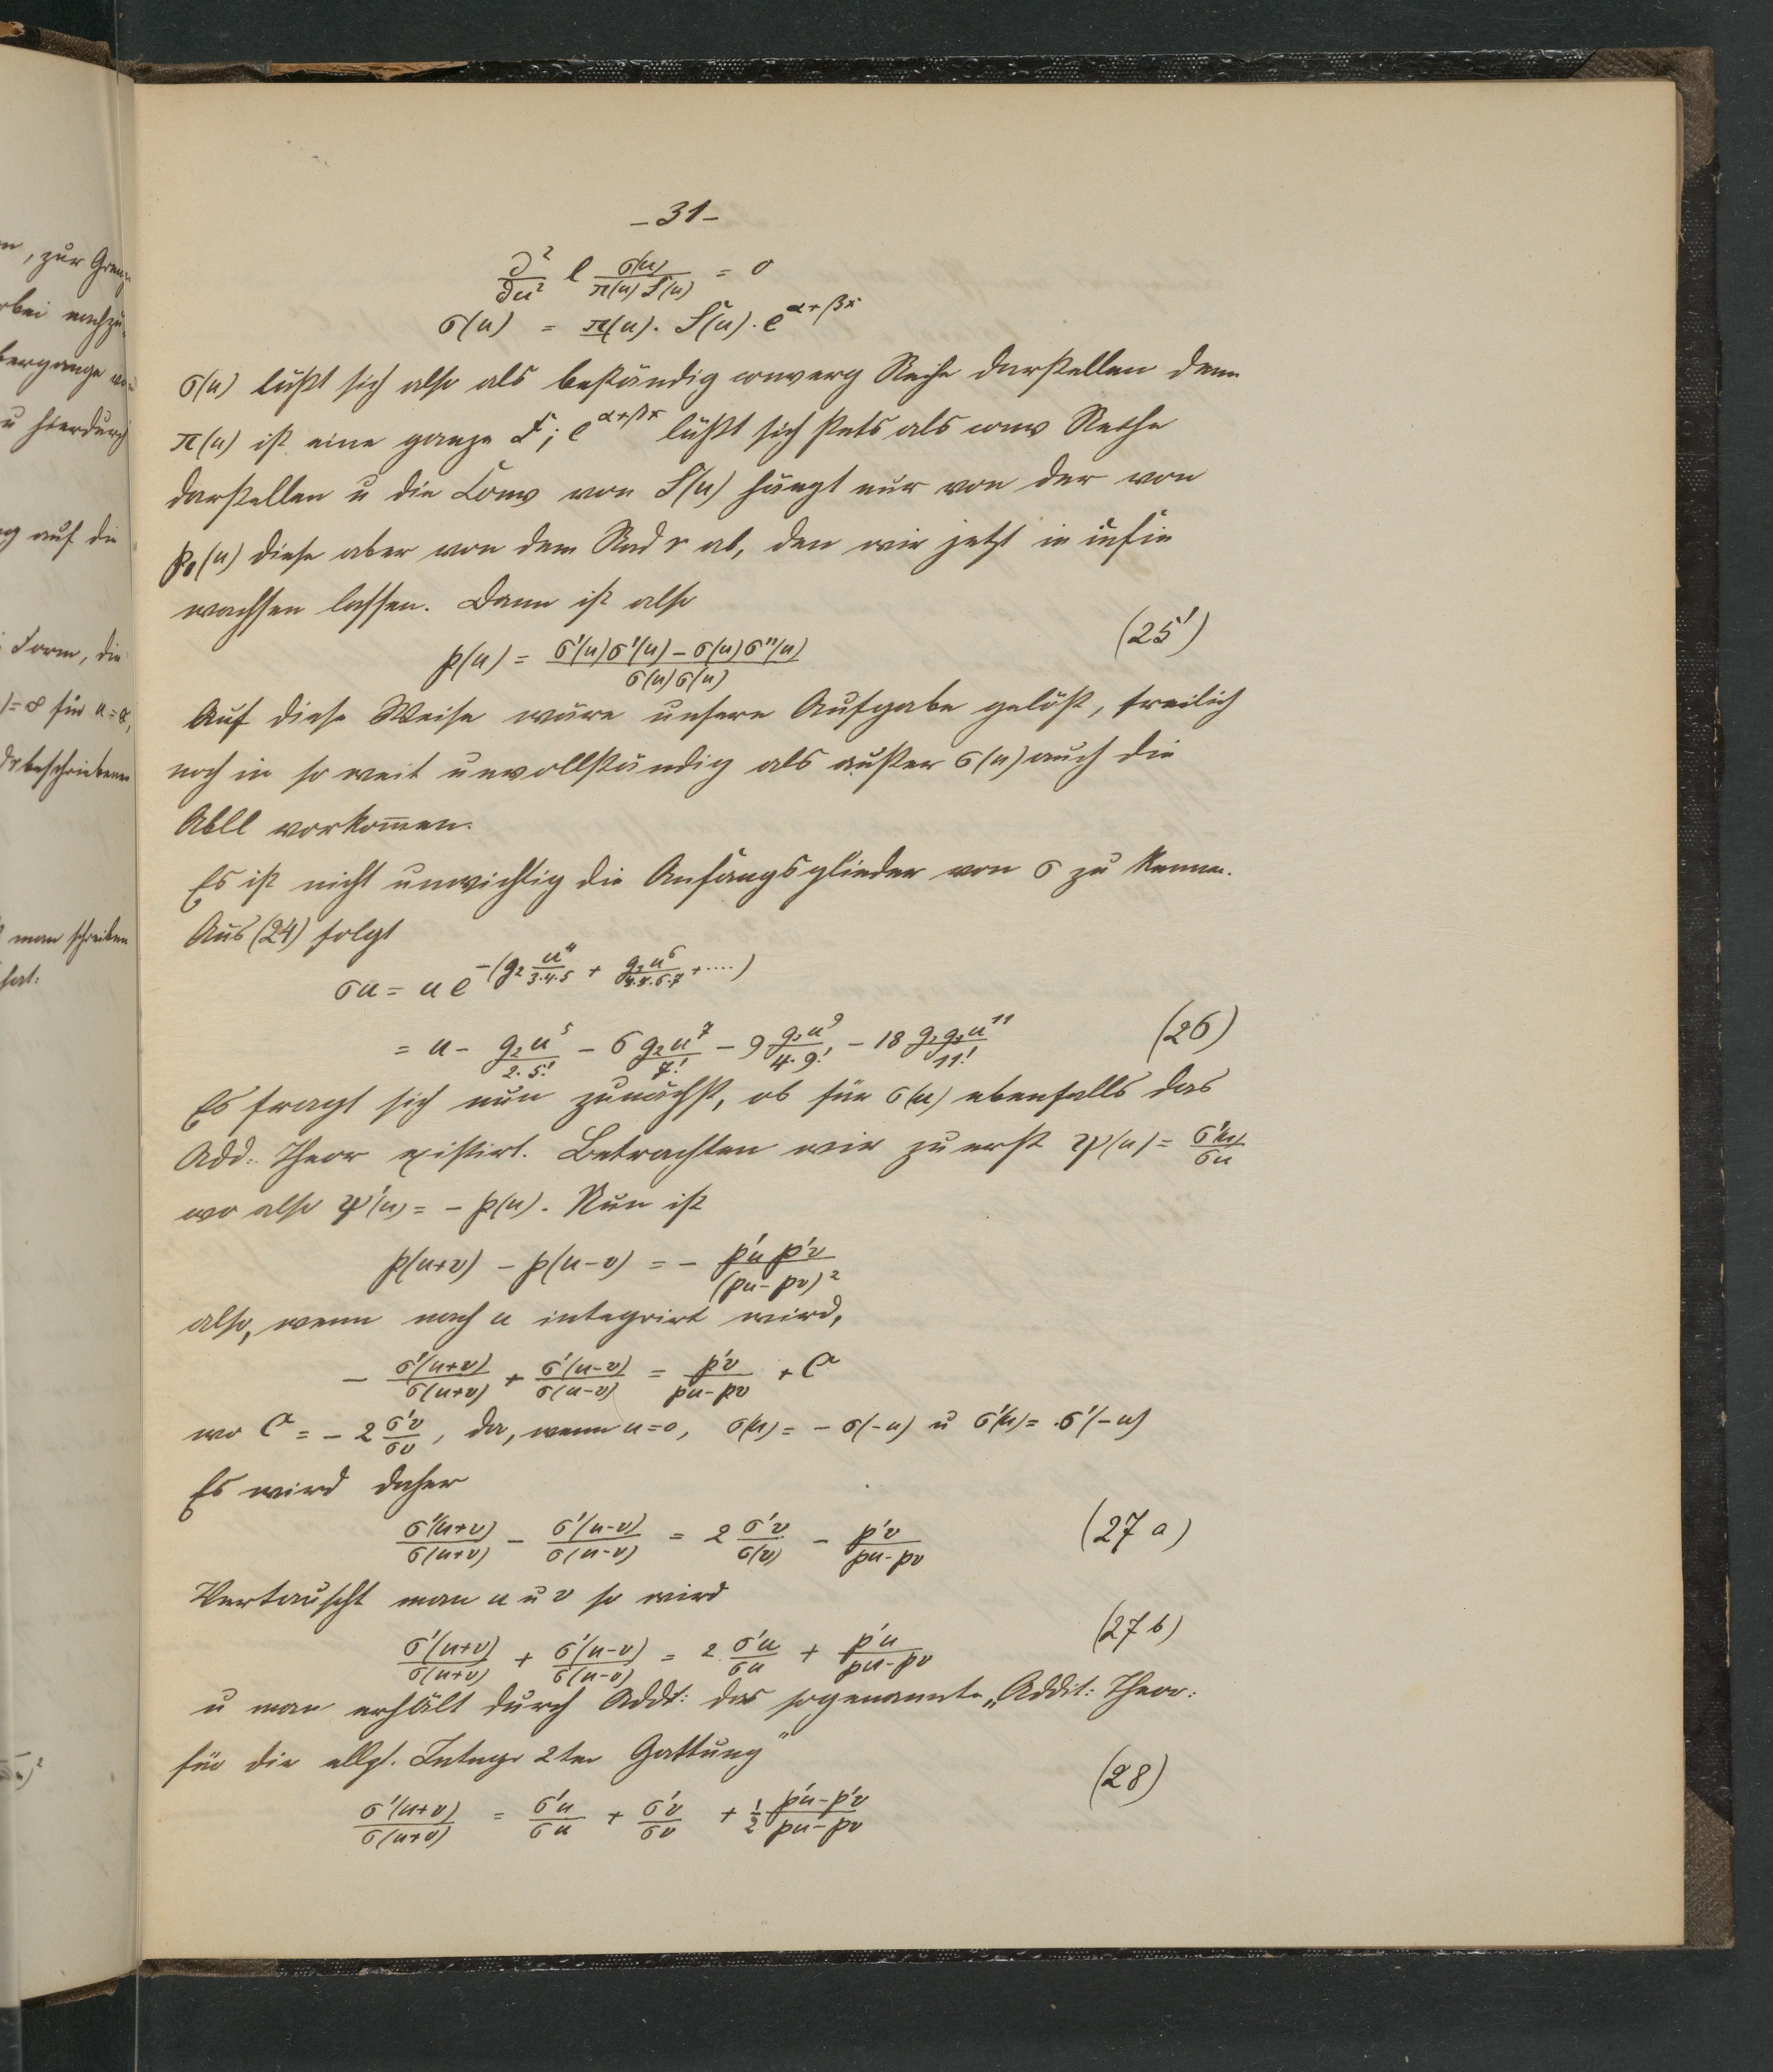 n, zur Gren
rbei nachzu
bergange
u hierdurch
g auf die
Form, die
)=∞ für u=∞,
beschriebenen
man schreiben
hat.
– 31 –
∂²/∂u² l σ(u)/(π(u) S(u)) = 0
σ(u) = π(u) · S(u) · e^{α+βx}
σ(u) läßt sich also als beständig converg Reihe darstellen denn
π(u) ist eine ganze F; e^{α+βx} läßt sich stets als conv Reihe
darstellen u die Conv von S(u) hängt nur von der von
p₀(u) diese aber von dem Rad r ab, den wir jetzt in infin
wachsen lassen. Dann ist also
p(u) = (σ'(u)σ'(u) – σ(u)σ''(u))/(σ(u)σ(u)) (25')
Auf diese Weise wäre unsere Aufgabe gelöst, freilich
noch in so weit unvollständig als außer σ(u) auch die
Abll vorkom̄en.
Es ist nicht unwichtig die Anfangsglieder von σ zu kennen.
Aus (24) folgt
σu = u e^{–(g₂ u⁴/(3·4·5) + g₃u⁶/(4·5·6·7) + ....)}
= u – g₂u⁵/(2·5!) – 6 g₂u⁷/7! – 9 g₂u⁹/(4·9!) – 18 g₂g₃u¹¹/11! (26)
Es fragt sich nun zunächst, ob für σ(u) ebenfalls das
Add: Theor existirt. Betrachten wir zuerst ψ(u) = σ'(u)/σu
wo also ψ'(u) = – p(u). Nun ist
p(u+v) – p(u–v) = – p'u p'v/(pu – pv)²
also, wenn nach u integrirt wird,
– σ'(u+v)/σ(u+v) + σ'(u–v)/σ(u–v) = p'v/(pu–pv) + C
wo C = – 2 σ'v/σv, da, wenn u=0, σ(u) = – σ(–u) u σ'(u) = σ'(–u)
Es wird daher
σ'(u+v)/σ(u+v) – σ'(u–v)/σ(u–v) = 2 σ'v/σ(v) – p'v/(pu–pv) (27 a)
Vertauscht man u u v so wird
σ'(u+v)/σ(u+v) + σ'(u–v)/σ(u–v) = 2 σ'u/σu + p'u/(pu–pv) (27 b)
u man erhält durch Addt: das sogenannte „Addit: Theor:
für die ellpt. Integr 2ter Gattung"
σ'(u+v)/σ(u+v) = σ'u/σu + σ'v/σv + ½ (p'u–p'v)/(pu–pv) (28)